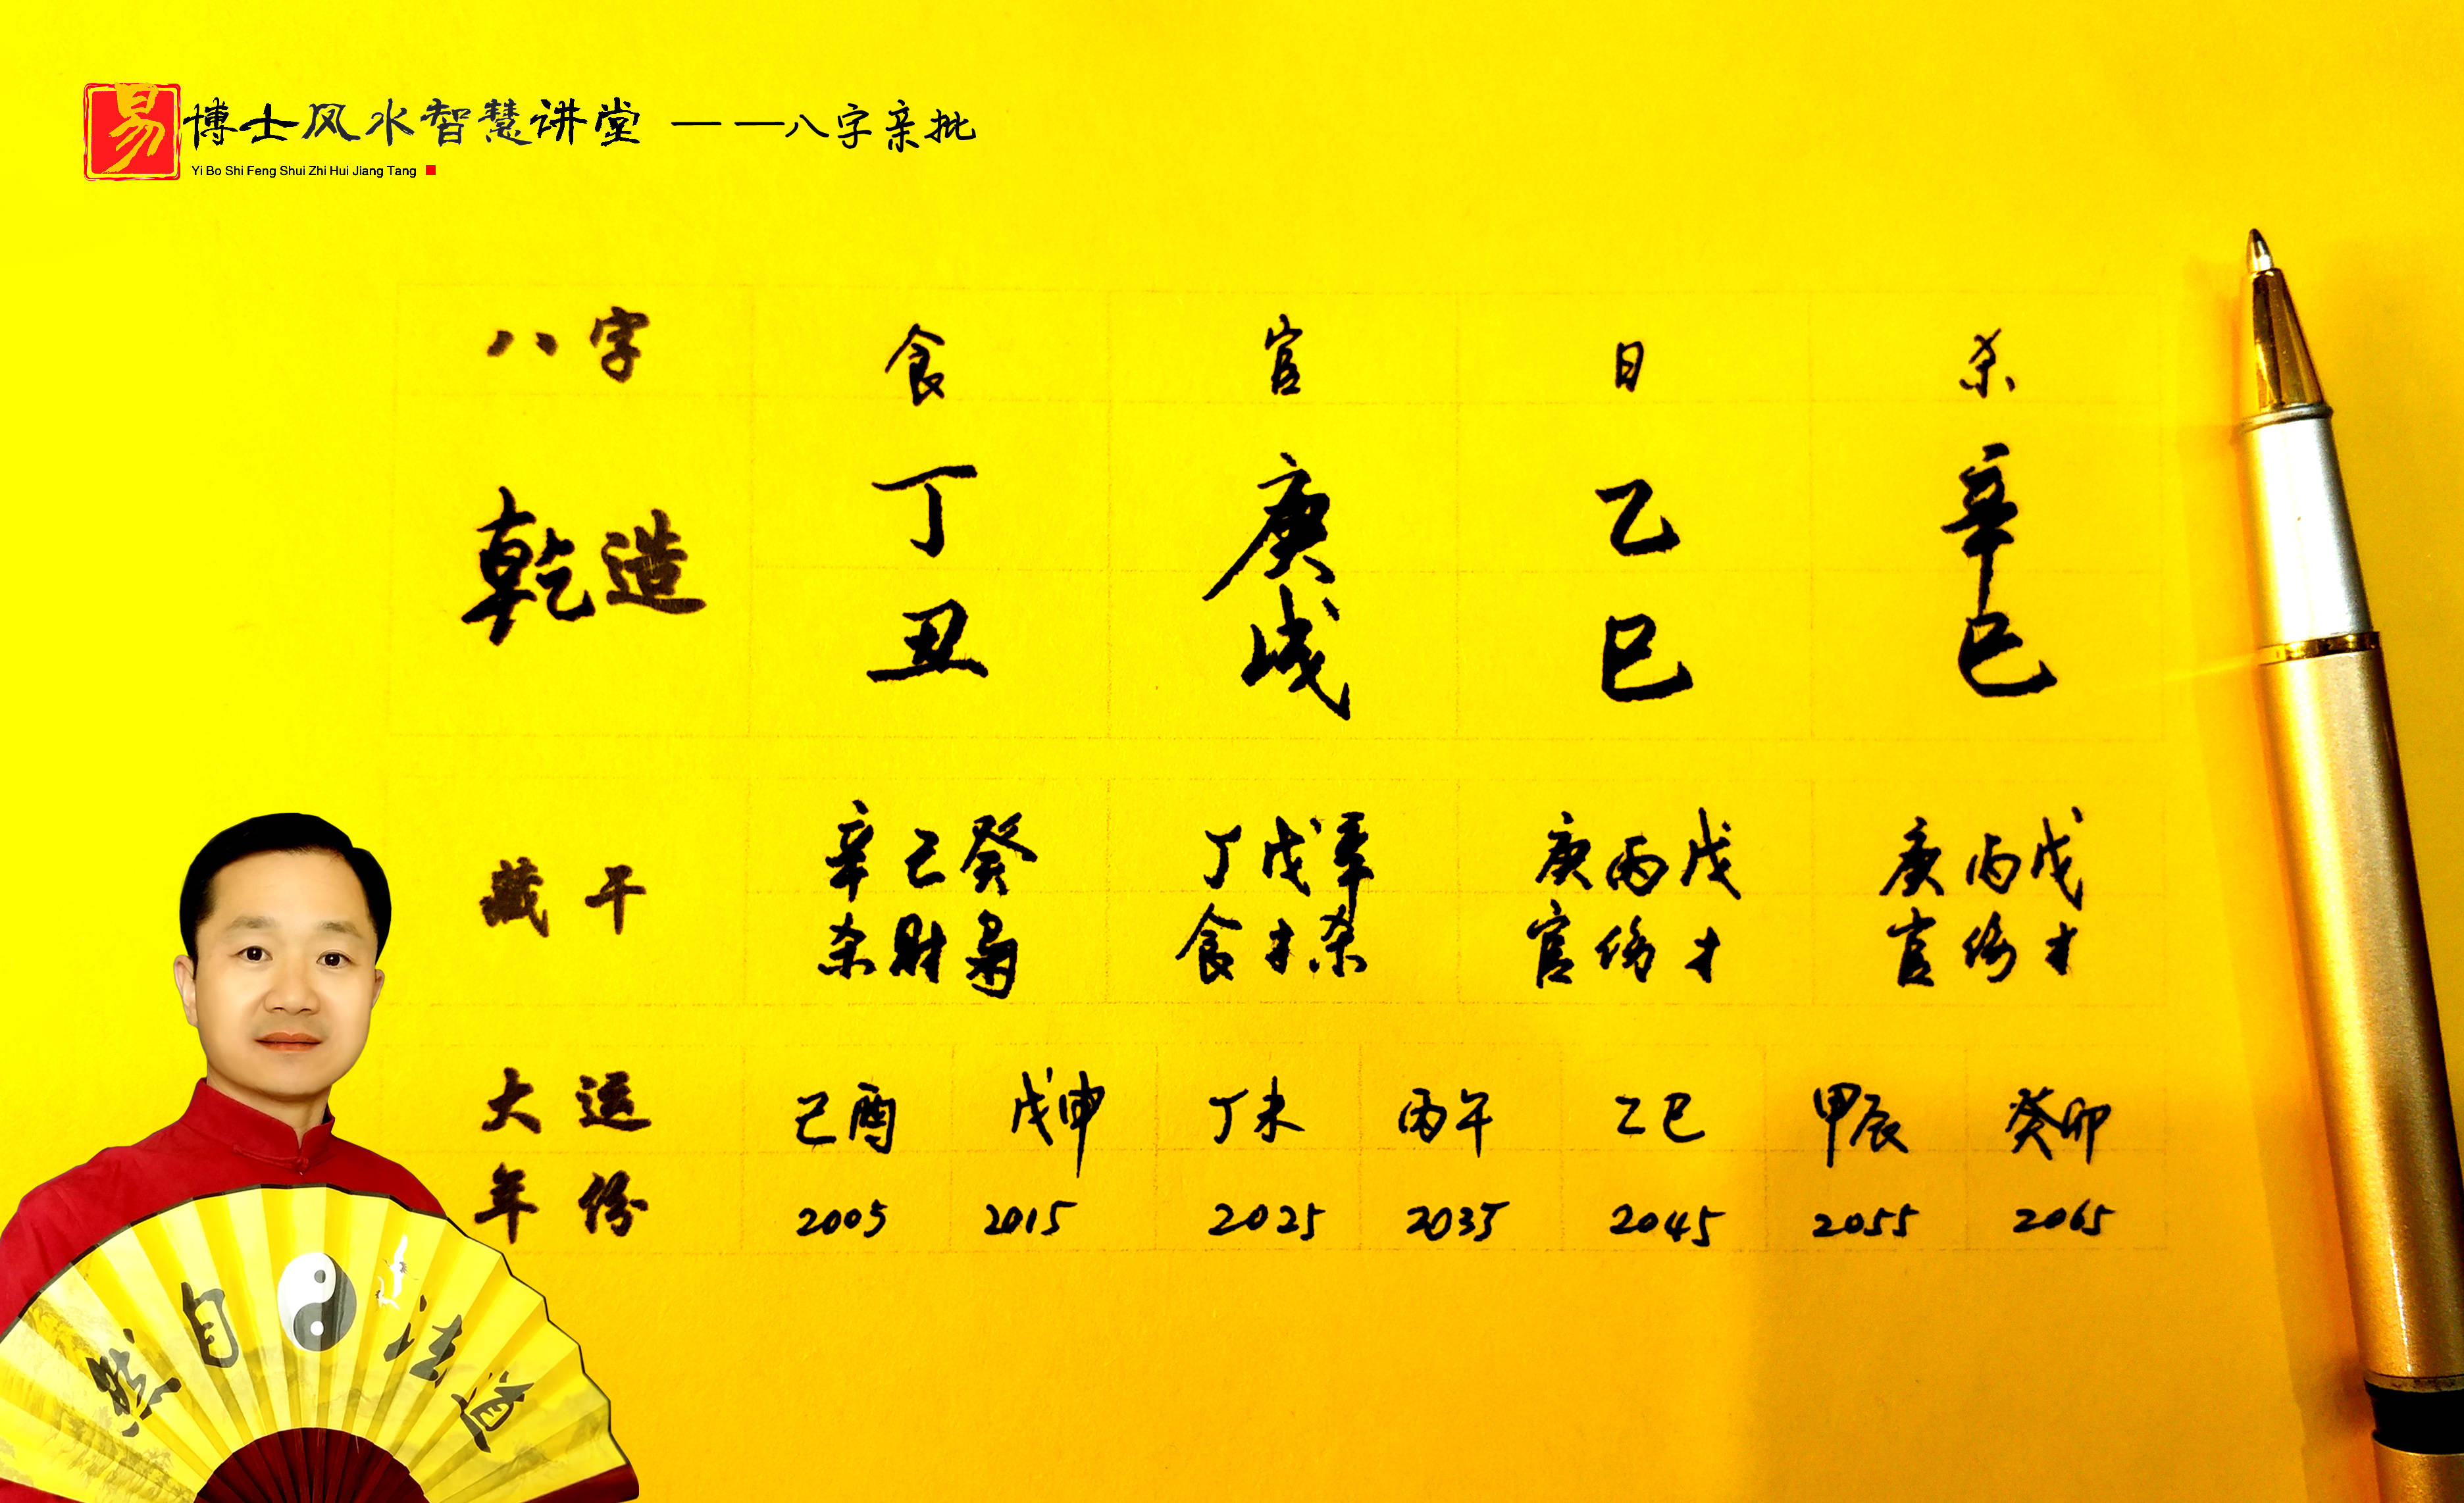 易博士风水智慧讲堂 ——八字亲批
Yi Bo Shi Feng Shui Zhi Hui Jiang Tang
八字 食 官 日 杀
乾造 丁 庚 乙 辛
丑 戌 巳 巳
藏干 辛己癸 丁戊辛 庚丙戊 庚丙戊
杀财枭 食才杀 官伤才 官伤才
大运 己酉 戊申 丁未 丙午 乙巳 甲辰 癸卯
年份 2005 2015 2025 2035 2045 2055 2065
道法自然